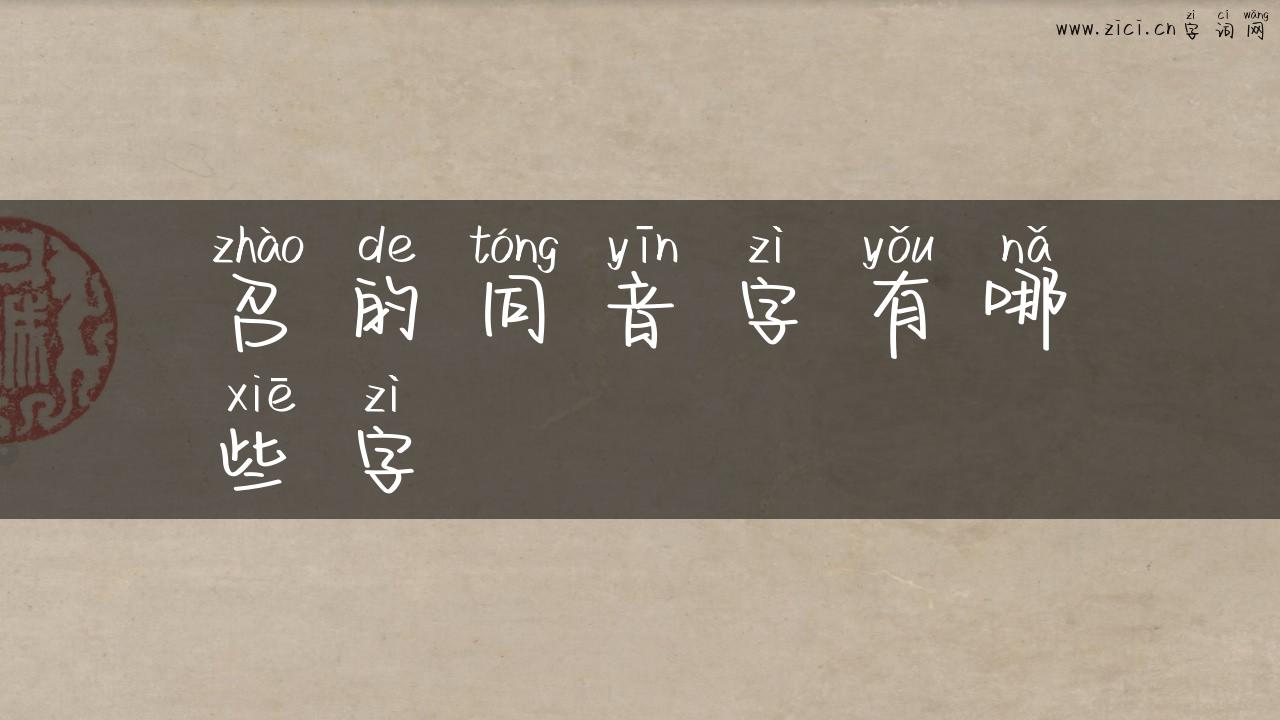 zì cí wǎng
www.zici.cn 字词网
zhào de tóng yīn zì yǒu nǎ
召的同音字有哪
xiē zì
些字